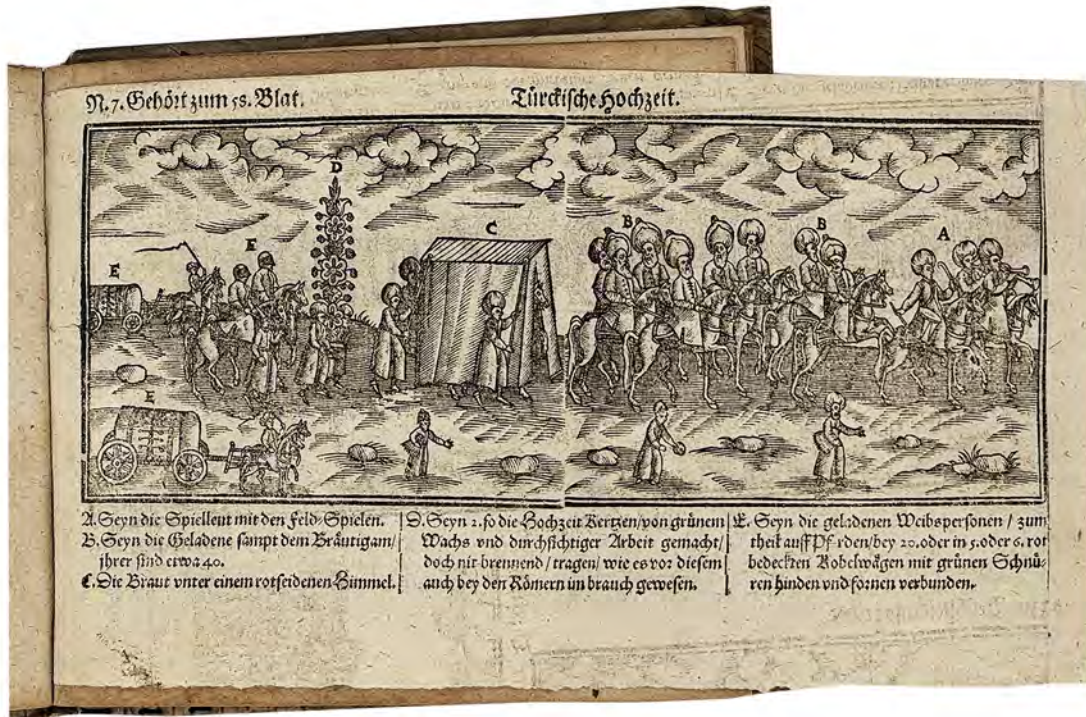 N. 7. Gehört zum 58. Blat.
Türckische Hochzeit.
D
C
B
B
A
E
E
E
A. Seyn die Spielleut mit den Feld-Spielen.
B. Seyn die Geladene sampt dem Bräutigam/
jhrer sind etwa 40.
C. Die Braut vnter einem rotseidenen Himmel.
D. Seyn 2. so die Hochzeit Kertzen/ von grünem
Wachs vnd durchsichtiger Arbeit gemacht/
doch nit brennend/ tragen/ wie es vor diesem
auch bey den Römern im brauch gewesen.
E. Seyn die geladenen Weibspersonen/ zum
theil auff Pf rden/ bey 20. oder in 5. oder 6. rot
bedeckten Kobelwägen mit grünen Schnü-
ren hinden vnd fornen verbunden.